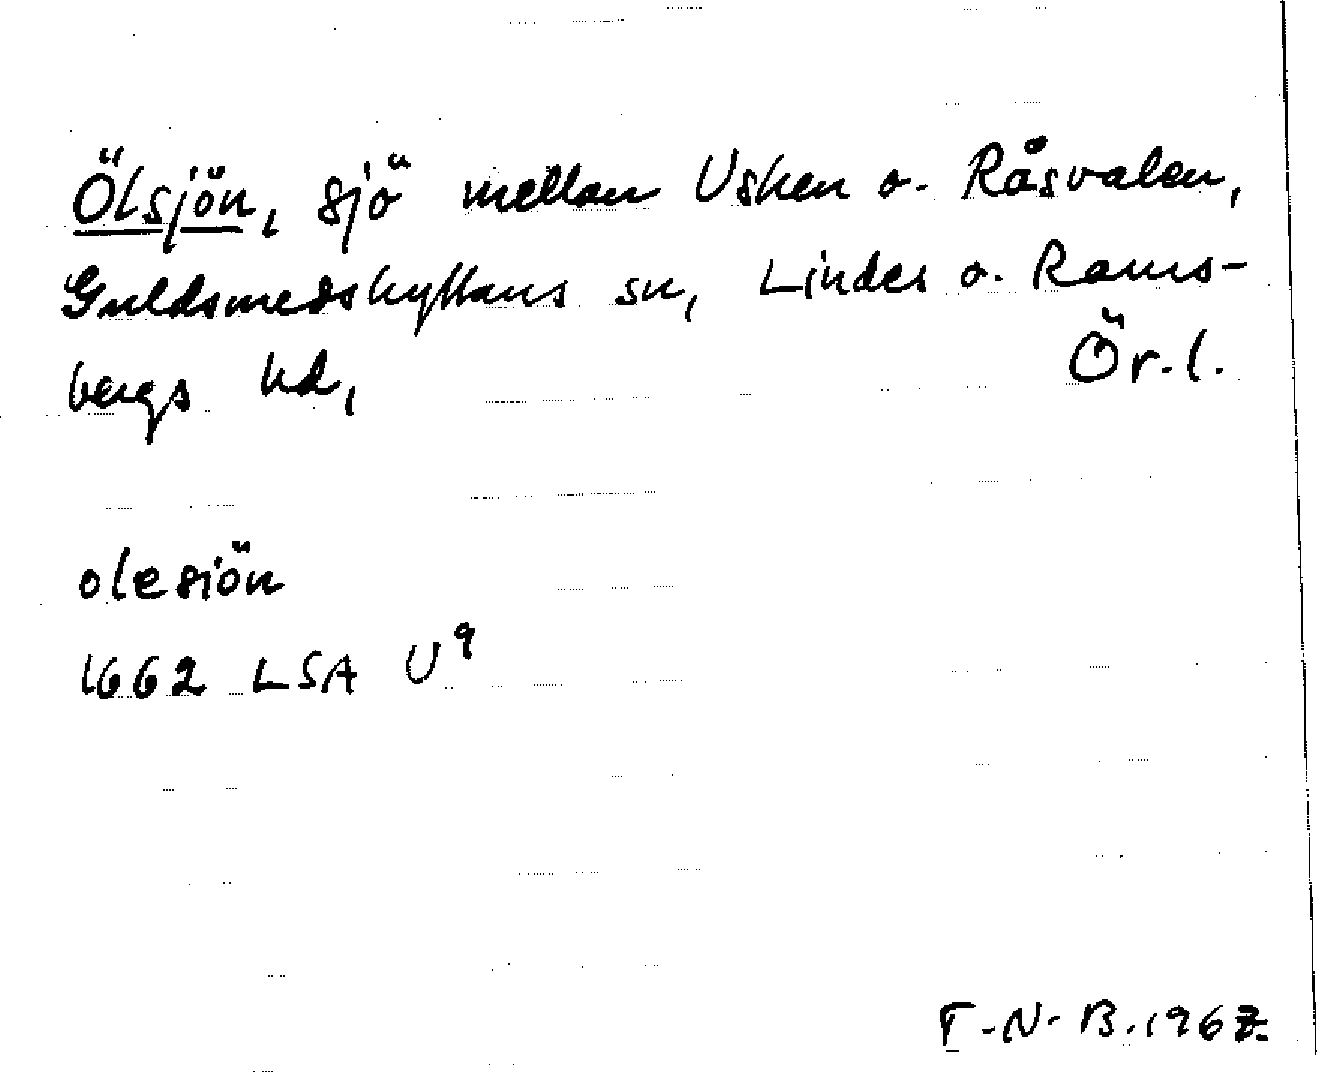 Ölsjön, sjö mellan Usken o. Råsvalen,
Guldsmedshyttans sn, Lindes o. Rams-
bergs hd, Ör.l.
olesiön
1662 LSA U⁹
T-N-B.1967